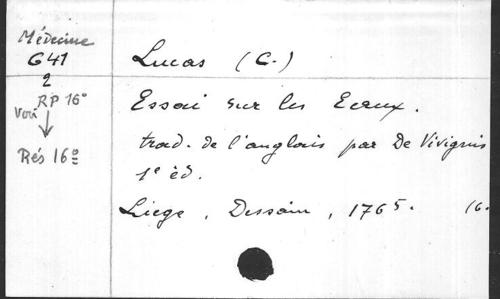 Médecine
G41
2
RP 16°
Voir
Rés 16°
Lucas (C.)
Essai sur les Eaux.
trad. de l'anglais par De Vivignis
1e éd.
Liege, Dessain, 1765. 16.